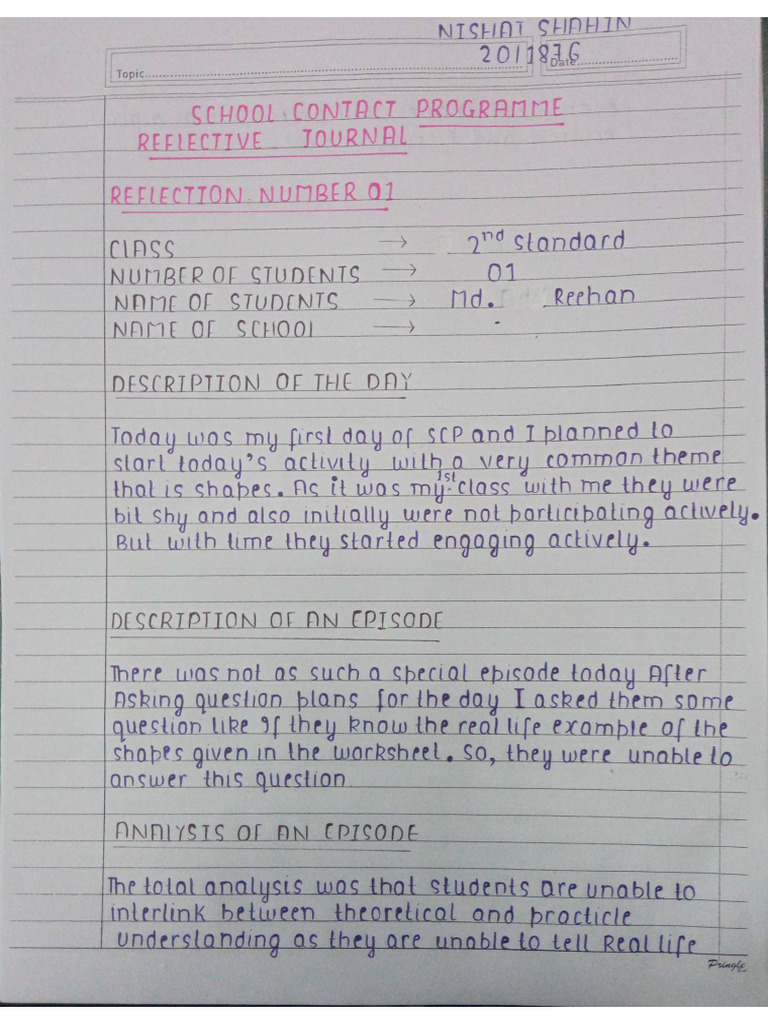 NISHAT SHAHIN
2011876
Topic
Date
SCHOOL CONTACT PROGRAMME
REFLECTIVE JOURNAL
REFLECTION NUMBER 01
CLASS → 2nd standard
NUMBER OF STUDENTS → 01
NAME OF STUDENTS → Md. Reehan
NAME OF SCHOOL → -
DESCRIPTION OF THE DAY
Today was my first day of SCP and I planned to
start today's activity with a very common theme
that is shapes. As it was my 1st class with me they were
bit shy and also initially were not participating actively.
But with time they started engaging actively.
DESCRIPTION OF AN EPISODE
There was not as such a special episode today After
Asking question plans for the day I asked them some
question like If they know the real life example of the
shapes given in the worksheet. So, they were unable to
answer this question
ANALYSIS OF AN EPISODE
The total analysis was that students are unable to
interlink between theoretical and practicle
understanding as they are unable to tell Real life
Pringle